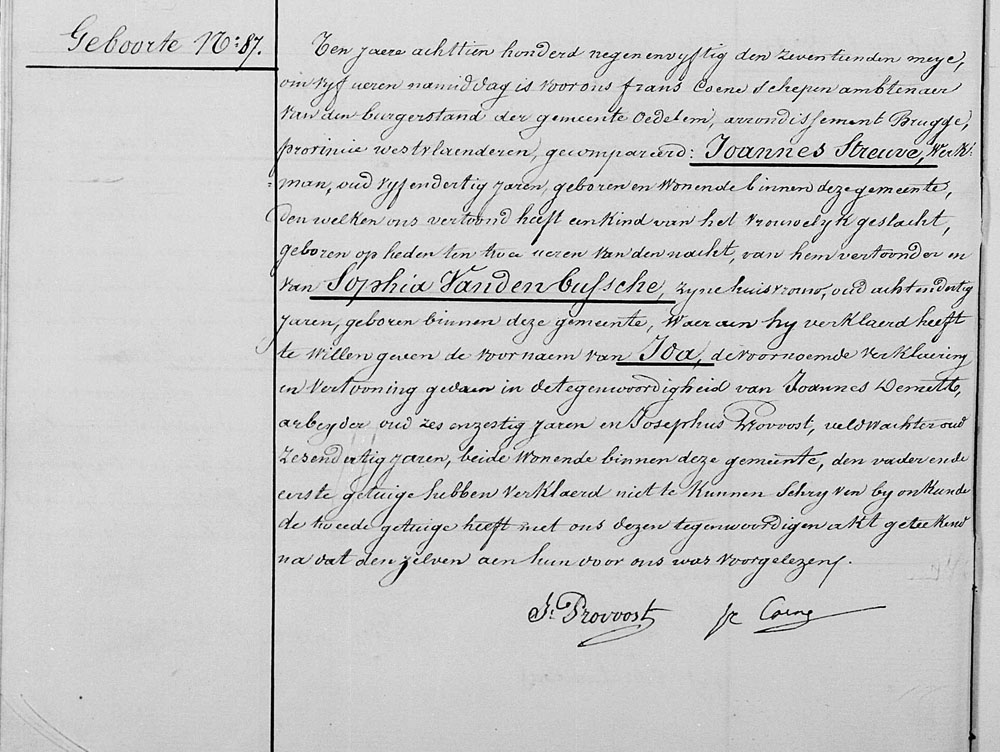 Geboorte N: 87.
Ten jaere achttien honderd negenenvyftig den zeventienden meye,
om vyf ueren namiddag is voor ons frans Coene Schepen ambtenaer
van den burgerstand der gemeente Oedelem, arrondissement Brugge,
provincie westvlaenderen, gecompareerd: Joannes Streuve, Werk-
man, oud vyfendertig jaren, geboren en wonende binnen deze gemeente,
den welken ons vertoond heeft een kind van het vrouwelyk geslacht,
geboren op heden ten twee ueren van den nacht, van hem vertoonder en
van Sophia Vandenbussche, zyne huisvrouw, oud achtendertig
jaren, geboren binnen deze gemeente, Waer aen hy verklaerd heeft
te willen geven de voornaem van Ida, de voornoemde verklaering
en vertooning gedaen in de tegenwoordigheid van Joannes
arbeyder oud zes en zestig jaren en Josephus Provoost, veldwachter oud
zesendertig jaren, beide wonende binnen deze gemeente, den vader en de
eerste getuige hebben verklaerd niet te kunnen schryven by onkunde
de tweede getuige heeft met ons dezen tegenwoordigen akt geteekend
na dat den zelven aen hun door ons was voorgelezen.
J. Provoost fr Coene